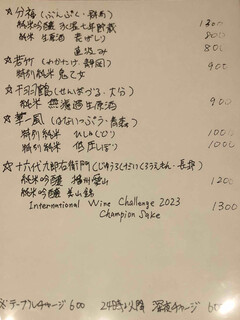 ☆分福(ぶんぷく・群馬)
純米吟醸 氷温七年貯蔵 1300
純米 生原酒 800
直汲み 800
☆若竹(わかたけ・静岡)
特別純米 鬼乙女 900
☆千羽鶴(せんばづる・大分)
純米 無濾過生原酒 900
☆華一風(はないっぷう・青森)
特別純米 1000
特別純米 1000
☆十六代九郎右衛門(じゅうろくだいくろうえもん・長野)
純米吟醸 播州愛山 1200
純米吟醸 美山錦 1300
International Wine Challenge 2023
Champion Sake
※テーブルチャージ 600 24時以降 深夜チャージ 600